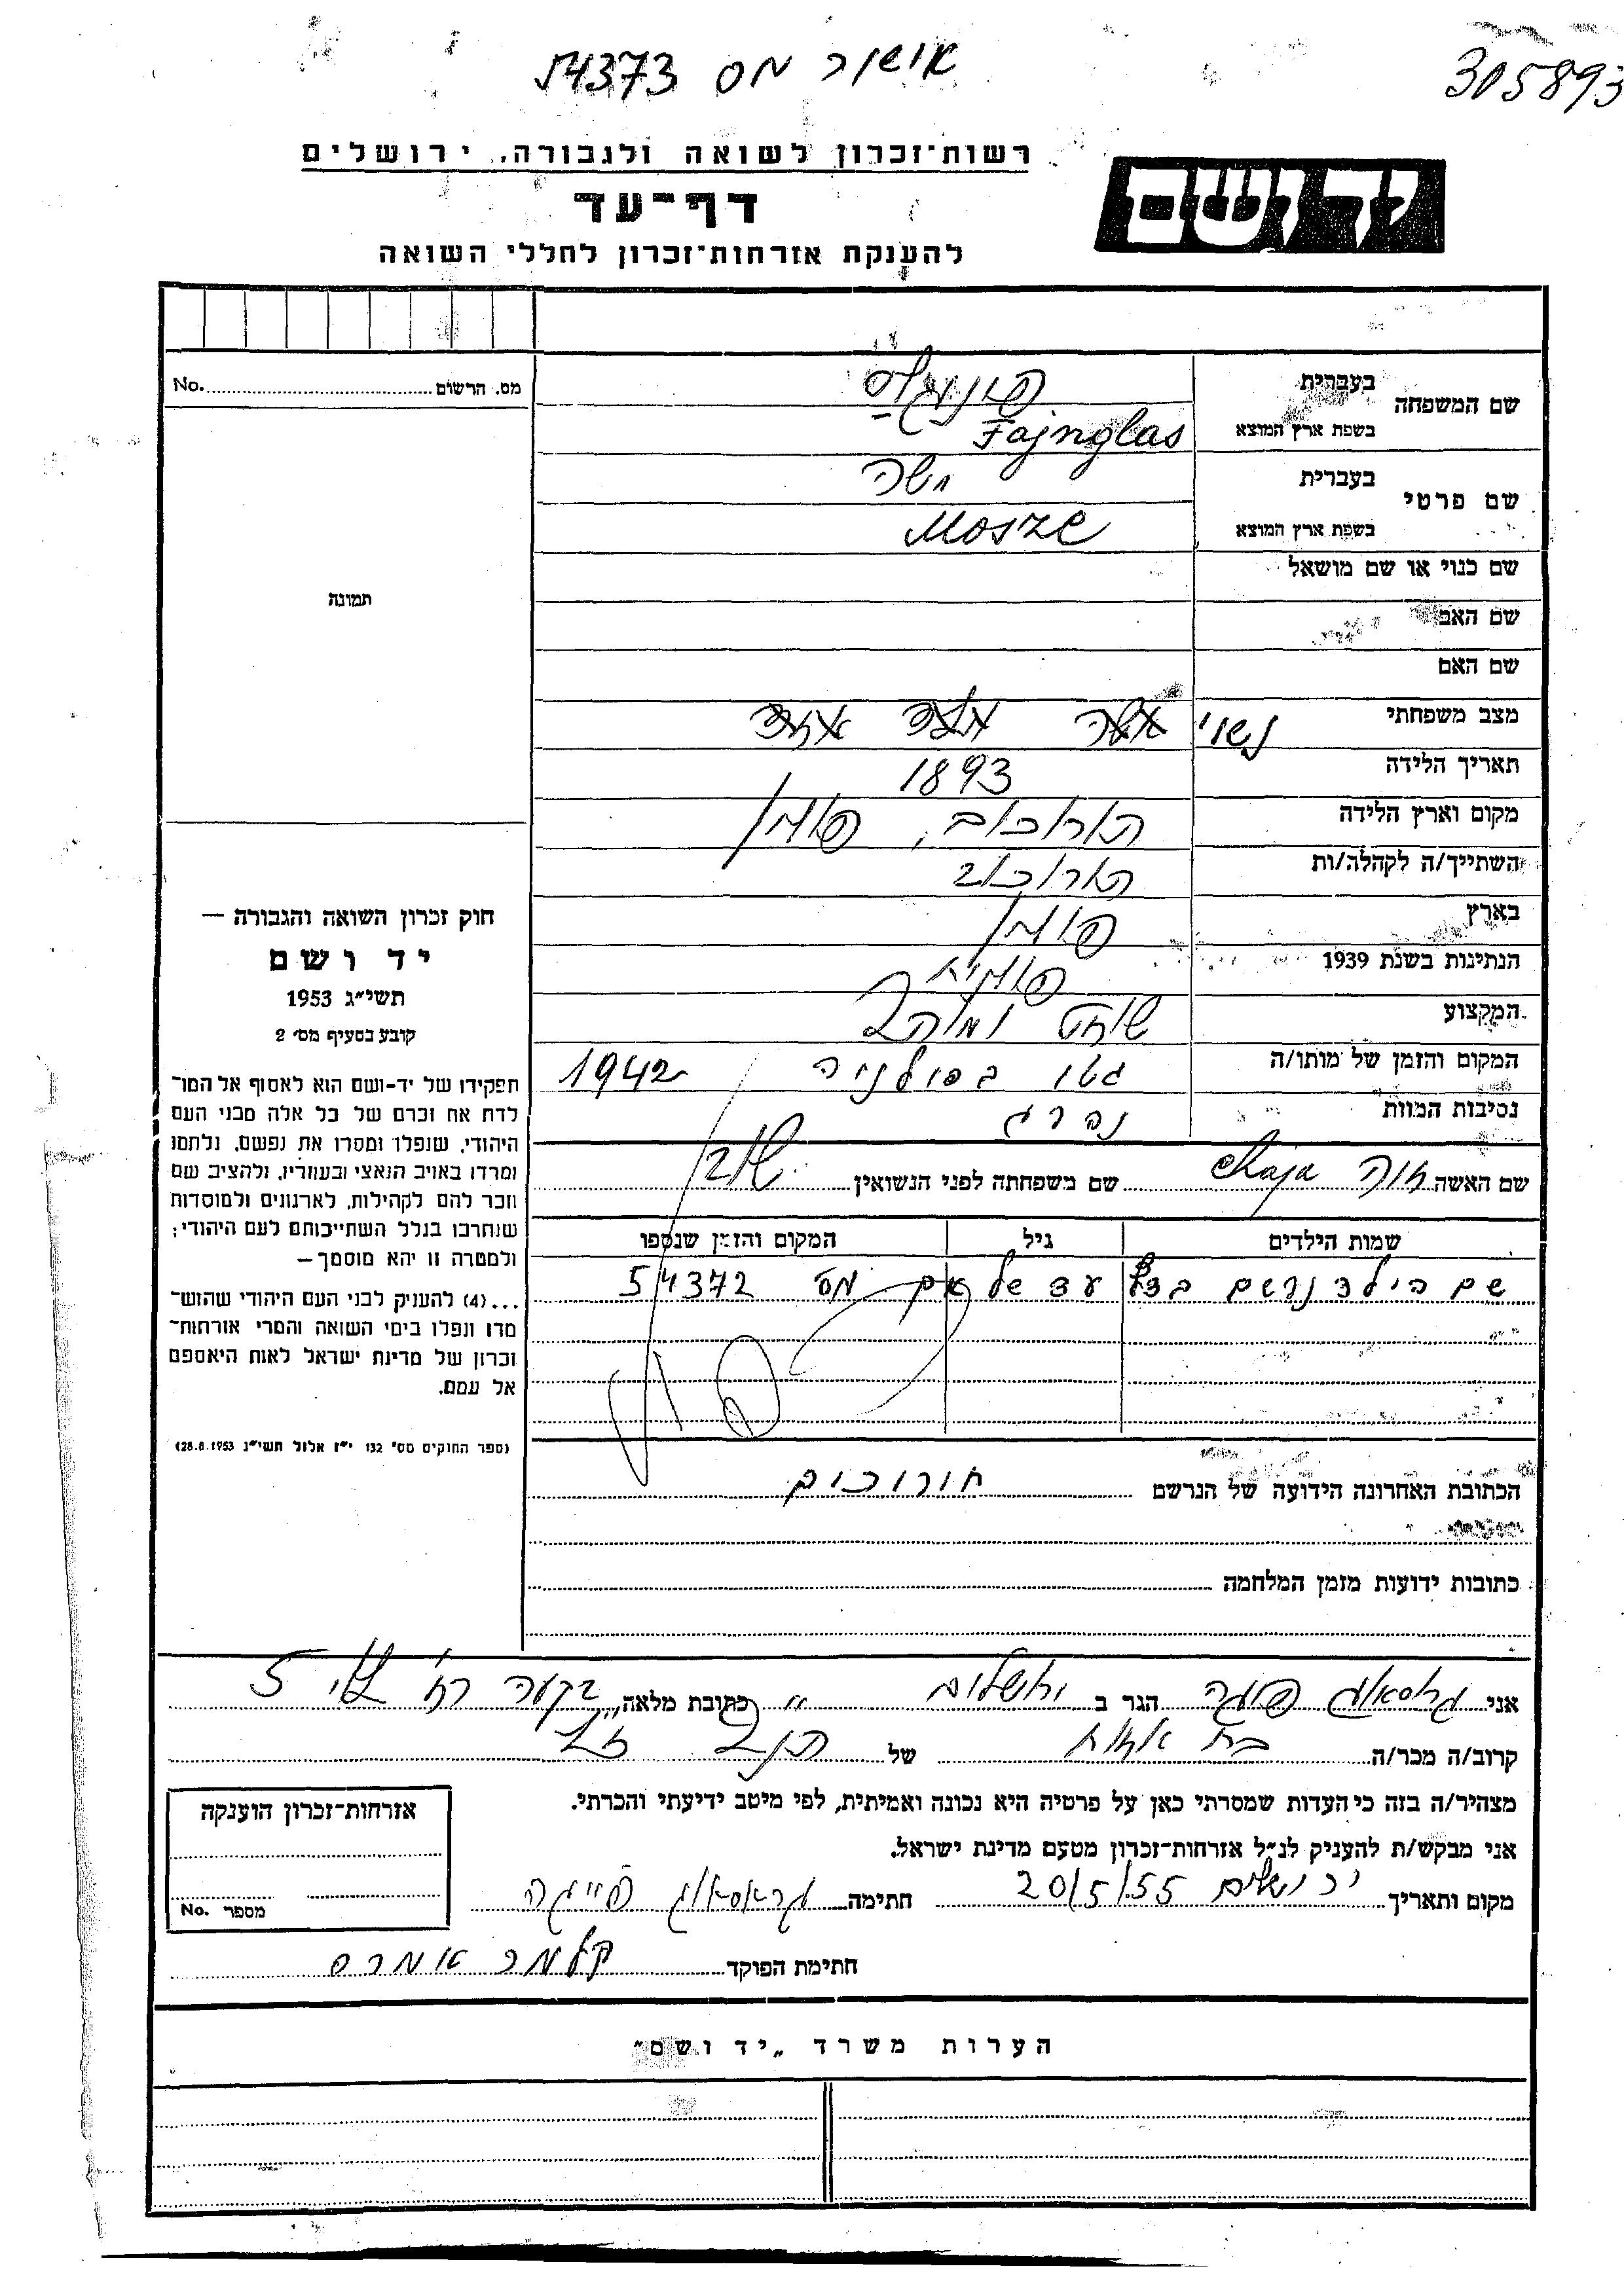 אישור מס 54373
305893
רשות־זכרון לשואה ולגבורה, ירושלים
יד ושם
דף־עד
להענקת אזרחות־זכרון לחללי השואה
מס. הרשום No.
תמונה
שם המשפחה בעברית פיינגלס
בשפת ארץ המוצא Fajnglas
שם פרטי בעברית משה
בשפת ארץ המוצא Mosze
שם כנוי או שם מושאל
שם האב
שם האם
מצב משפחתי נשוי
תאריך הלידה 1893
מקום וארץ הלידה פולין
השתייך/ה לקהלה/ות
בארץ פולין
הנתינות בשנת 1939 פולנית
המקצוע שוחט ומוהל
המקום והזמן של מותו/ה גטו בפולניה 1942
נסיבות המוות נהרג
שם האשה חיה Chaja שם משפחתה לפני הנשואין
שמות הילדים גיל המקום והזמן שנספו
שם הילד נרשם בדף עד של אם מס 54372
הכתובת האחרונה הידועה של הנרשם
כתובות ידועות מזמן המלחמה
חוק זכרון השואה והגבורה —
יד ושם
תשי״ג 1953
קובע בסעיף מס׳ 2
תפקידו של יד-ושם הוא לאסוף אל המו־
לדת את זכרם של כל אלה מבני העם
היהודי, שנפלו ומסרו את נפשם, נלחמו
ומרדו באויב הנאצי ובעוזריו, ולהציב שם
וזכר להם לקהילות, לארגונים ולמוסדות
שנחרבו בגלל השתייכותם לעם היהודי;
ולמטרה זו יהא מוסמך—
...(4) להעניק לבני העם היהודי שהוש־
מדו ונפלו בימי השואה והמרי אזרחות־
זכרון של מדינת ישראל לאות היאספם
אל עמם.
(ספר החוקים מס׳ 132 י״ז אלול תשי״ג 28.8.1953)
אני הגר ב ירושלים כתובת מלאה בקעה 5
קרוב/ה מכר/ה בת של הנ״ל
מצהיר/ה בזה כי העדות שמסרתי כאן על פרטיה היא נכונה ואמיתית, לפי מיטב ידיעתי והכרתי.
אני מבקש/ת להעניק לנ״ל אזרחות־זכרון מטעם מדינת ישראל.
מקום ותאריך ירושלים 20/5/55 חתימה
אזרחות־זכרון הוענקה
מספר No.
חתימת הפוקד
הערות משרד „יד ושם״